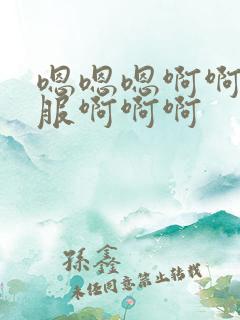 嗯嗯嗯啊啊
服啊啊啊
孫鑫
未经同意禁止转载